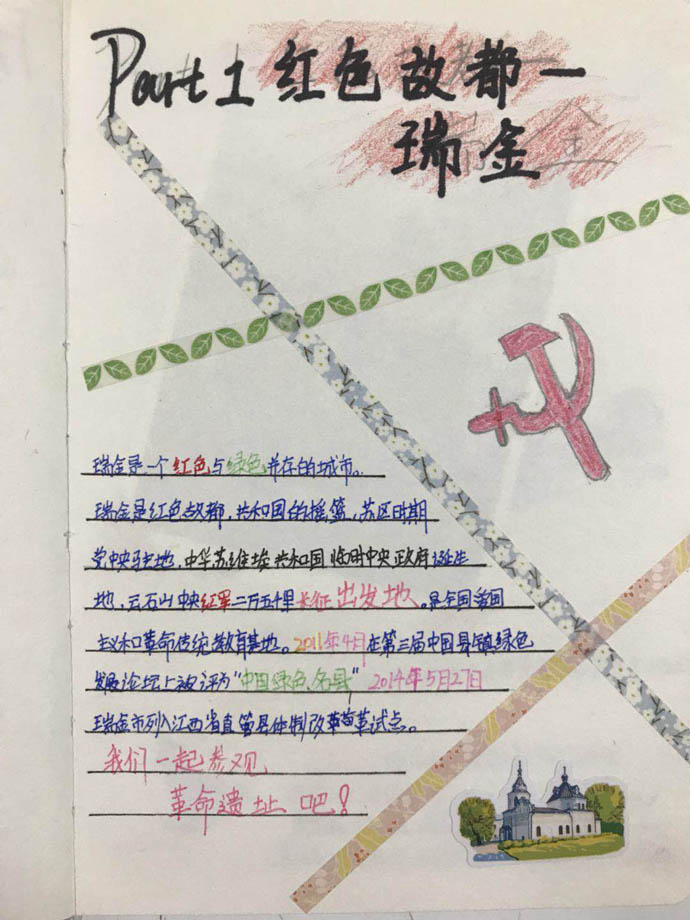 Part 1 红色故都一
瑞金
瑞金是一个红色与绿色并存的城市。
瑞金是红色故都,共和国的摇篮,苏区时期
党中央驻地,中华苏维埃共和国临时中央政府诞生
地,云石山中央红军二万五千里长征出发地。是全国爱国
主义和革命传统教育基地。2011年4月在第三届中国县镇绿色
发展论坛上被评为“中国绿色名县”2014年5月27日
瑞金市列入江西省直管县体制改革试点。
我们一起参观
革命遗址吧!